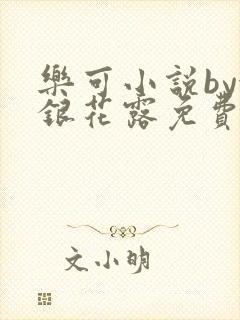 樂可小說by
銀花露免費
文小明